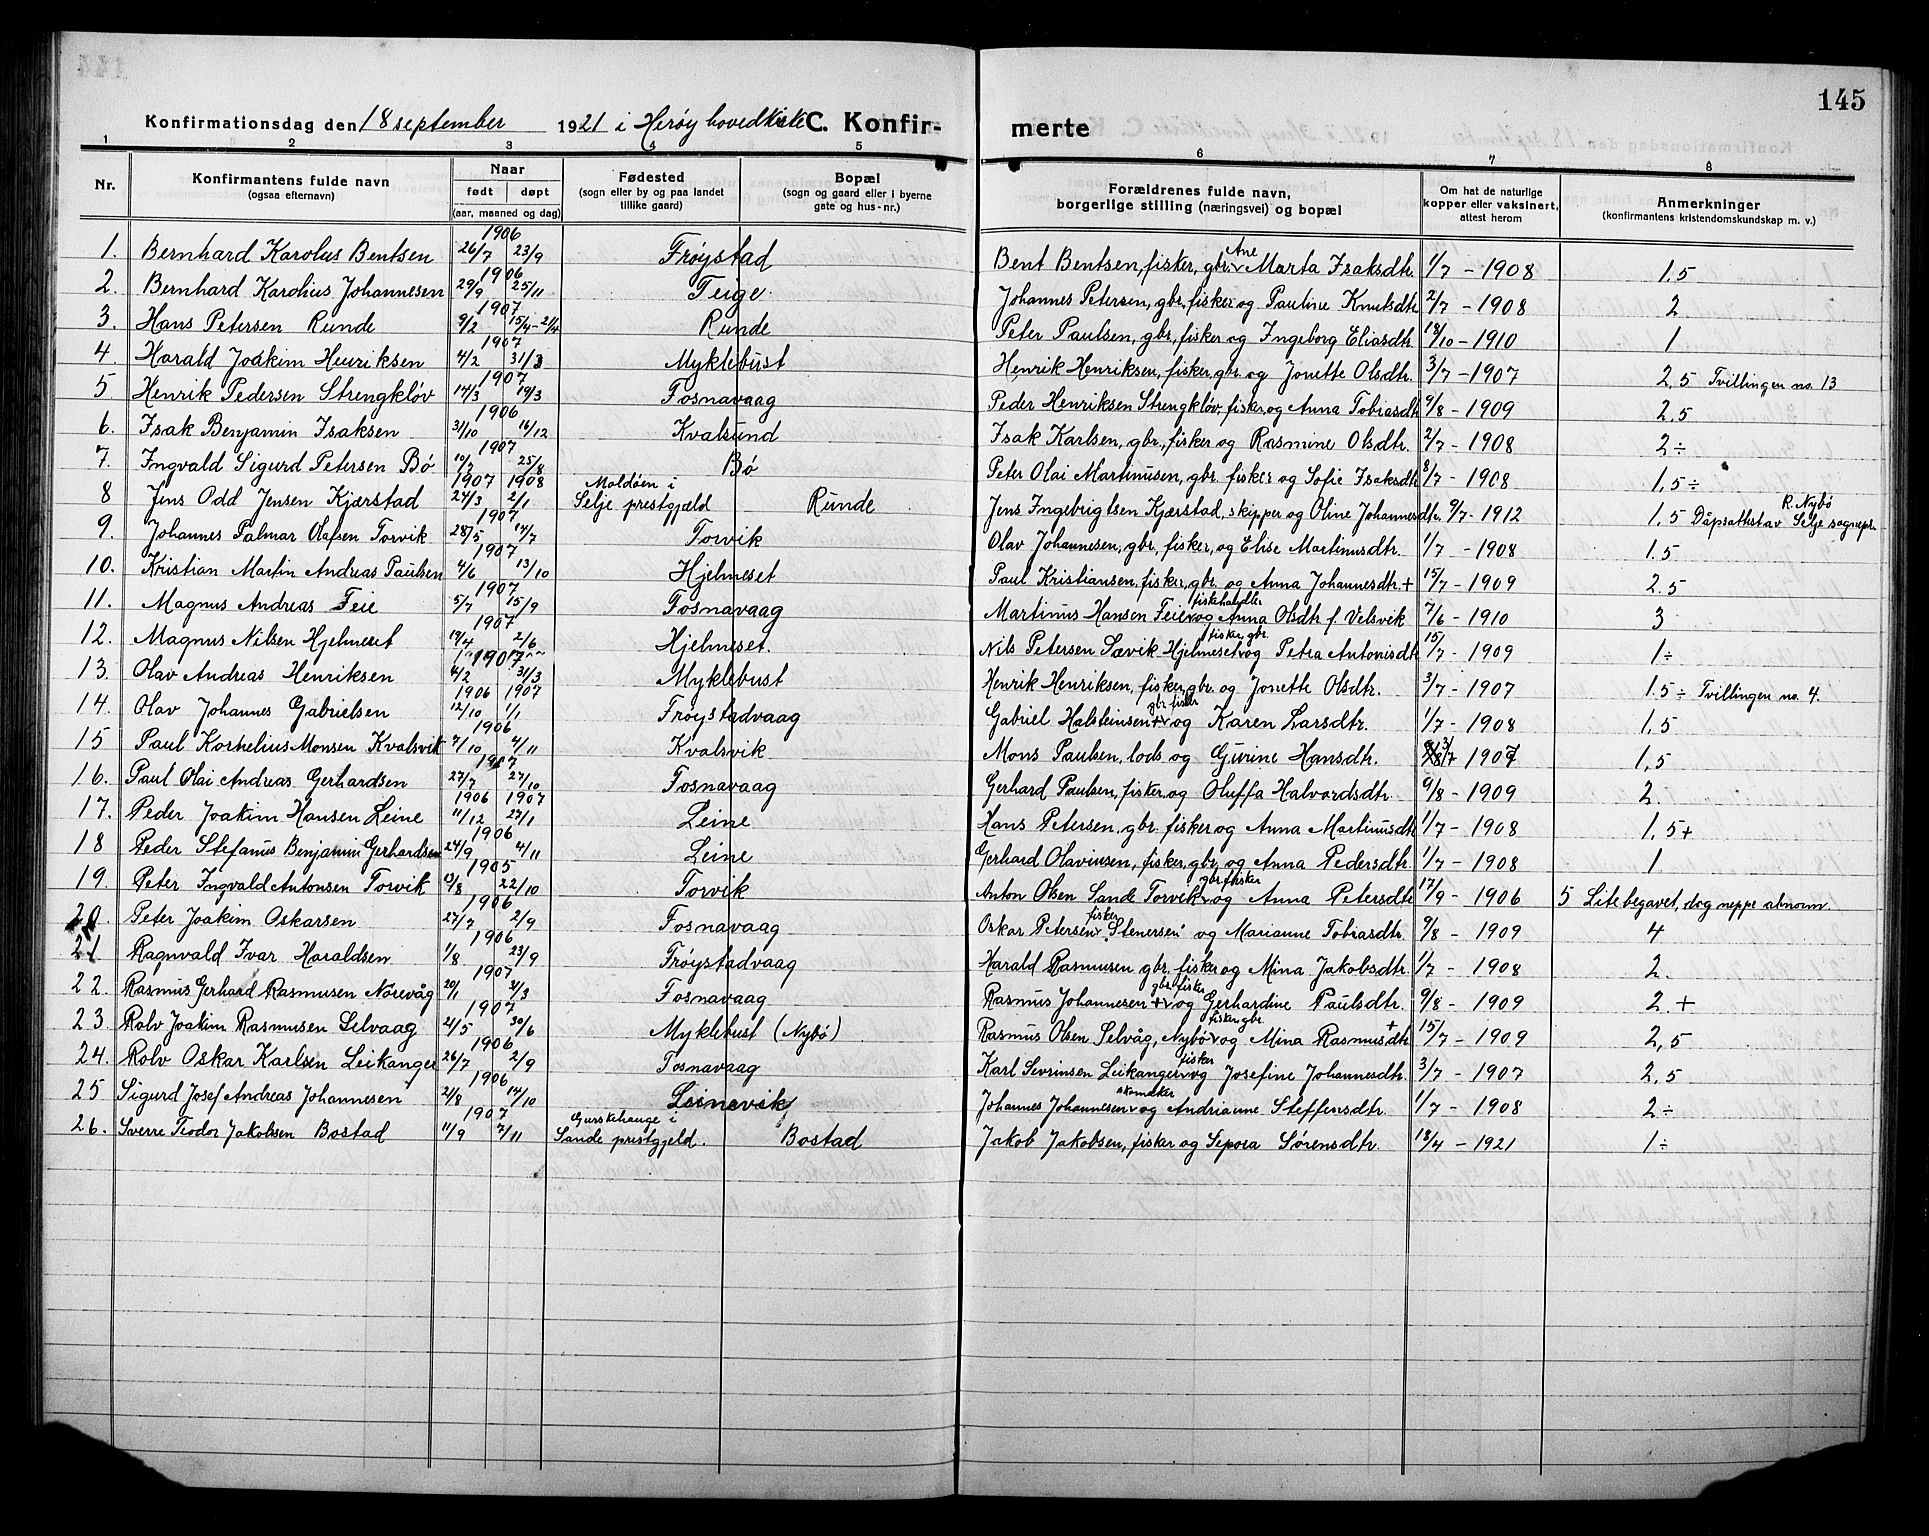 145
Konfirmationsdag den 18 september 1921 i Herøy hovedkirke C. Konfir-merte
1 2 3 4 5 6 7 8
Nr. Konfirmantens fulde navn (ogsaa efternavn) Naar født døpt (aar, maaned og dag) Fødested (sogn eller by og paa landet tillike gaard) Bopæl (sogn og gaard eller i byerne gate og hus-nr.) Forældrenes fulde navn, borgerlige stilling (næringsvei) og bopæl Om hat de naturlige kopper eller vaksinert, attest herom Anmerkninger (konfirmantens kristendomskundskap m. v.)
1. Bernhard Karolus Bentsen 1906 26/7 23/9 Frøystad Bent Bentsen, fisker, gbr. Ane Marta Isaksdtr. 1/7 - 1908 1,5
2. Bernhard Karolius Johannesen 1906 29/9 25/11 Teige Johannes Petersen, gbr. fisker og Pauline Knutsdtr. 2/7 - 1908 2
3. Hans Petersen Runde 1907 9/2 15/4-21/4 Runde Peter Paulsen, gbr. fisker og Ingeborg Eliasdtr. 18/10 - 1910 1
4 Harald Joakim Henriksen 1907 4/2 31/3 Myklebust Henrik Henriksen, fisker, gbr. og Jonette Olsdtr. 3/7 - 1907 2,5 Tvillingen no. 13
5 Henrik Pedersen Strengkløv 1907 14/3 19/3 Fosnavaag Peder Henriksen Strengkløv, fisker, og Anna Tobiasdtr 9/8 - 1909 2,5
6. Isak Benjamin Isaksen 1906 31/10 16/12 Kvalsund Isak Karlsen, gbr., fisker og Rasmine Olsdtr. 2/7 - 1908 2÷
7. Ingvald Sigurd Petersen Bø 1907 10/7 25/8 Bø Peter Olai Martinusen, gbr. fisker og Sofie Isaksdtr 8/7 - 1908 1,5÷
8 Jens Odd Jensen Kjærstad 1907 1908 24/3 2/1 Moldøen i Selje prestgjeld Runde Jens Ingebrigtsen Kjærstad, skipper og Oline Johannesdtr. 9/7 - 1912 1,5 Dåpsattest av R. Nybø Selje sognepr.
9. Johannes Palmar Olafsen Torvik 1907 28/5 14/7 Torvik Olav Johannesen, gbr., fisker, og Elise Martinusdtr. 1/7 - 1908 1.5
10. Kristian Martin Andreas Paulsen 1907 4/6 13/10 Hjelmeset Paul Kristiansen fisker, gbr. og Anna Johannesdtr + 15/7 - 1909 2.5
11. Magnus Andreas Feie 1907 5/7 15/9 Fosnavaag Martinus Hansen Feie fiskehandler og Anna Olsdtr f. Velsvik 7/6 - 1910 3
12. Magnus Nilsen Hjelmeset 1907 19/4 2/6 Hjelmeset. Nils Petersen Sævik Hjelmeset fisker, gbr. og Petra Antonisdtr 15/7 - 1909 1÷
13. Olav Andreas Henriksen 1907 4/2 31/3 Myklebust Henrik Henriksen, fisker, gbr. og Jonette Olsdtr. 3/7 - 1907 1.5÷ Tvillingen no. 4.
14. Olav Johannes Gabrielsen 1906 1907 12/10 1/1 Frøystadvaag Gabriel Halsteinsen + gbr fisker og Karen Larsdtr. 1/7 - 1908 1,5
15 Paul Kornelius Monsen Kvalsvik 1906 7/10 4/11 Kvalsvik Mons Paulsen, lods og Gurine Hansdtr. 3/7 1907 1,5
16. Paul Olai Andreas Gerhardsen 1907 27/7 27/10 Fosnavaag Gerhard Paulsen, fisker, og Oluffa Halvordsdtr. 9/8 - 1909 2.
17. Peder Joakim Hansen Leine 1906 1907 11/12 27/1 Leine Hans Petersen, gbr. fisker og Anna Martinusdtr 1/7 - 1908 1,5+
18 Peder Stefanus Benjamin Gerhardsen 1906 24/9 4/11 Leine Gerhard Olavinsen, fisker, gbr. og Anna Pedersdtr. 1/7 - 1908 1
19. Peter Ingvald Antonsen Torvik 1905 13/8 22/10 Torvik Anton Olsen Sande Torvik gbr. fisker og Anna Petersdtr 17/9 - 1906 5 Lite begavet, dog neppe abnorm.
20. Peter Joakim Oskarsen 1906 27/7 2/9 Fosnavaag Oskar Petersen fisker "Stenersen" og Marianne Tobiasdtr. 9/8 - 1909 4
21 Ragnvald Ivar Haraldsen 1906 1/8 23/9 Frøystadvaag Harald Rasmusen gbr. fisker og Mina Jakobsdtr. 1/7 - 1908 2.
22. Rasmus Gerhard Rasmusen Norevåg 1907 20/1 3/3 Fosnavaag Rasmus Johannesen + gbr. fisker og Gerhardine Paulsdtr. 9/8 - 1909 2.+
23. Rolv Joakim Rasmusen Selvaag 1907 21/5 30/6 Myklebust (Nybø) Rasmus Olsen Selvåg, Nybø fisker gbr. og Mina Rasmusdtr + 15/7 - 1909 2,5
24. Rolv Oskar Karlsen Leikanger 1906 26/7 2/9 Fosnavaag Karl Sevrinsen Leikanger fisker og Josefine Johannesdtr. 3/7 - 1907 2,5
25 Sigurd Josef Andreas Johannesen 1906 21/8 14/10 Leinevik Johannes Johannesen skomaker og Andrianne Steffensdtr. 1/7 - 1908 2÷
26. Sverre Teodor Jakobsen Bostad 1907 11/9 7/11 Gurskehauge i Sande prestgjeld. Bostad Jakob Jakobsen, fisker og Sepora Sørensdtr. 18/4 - 1921 1÷